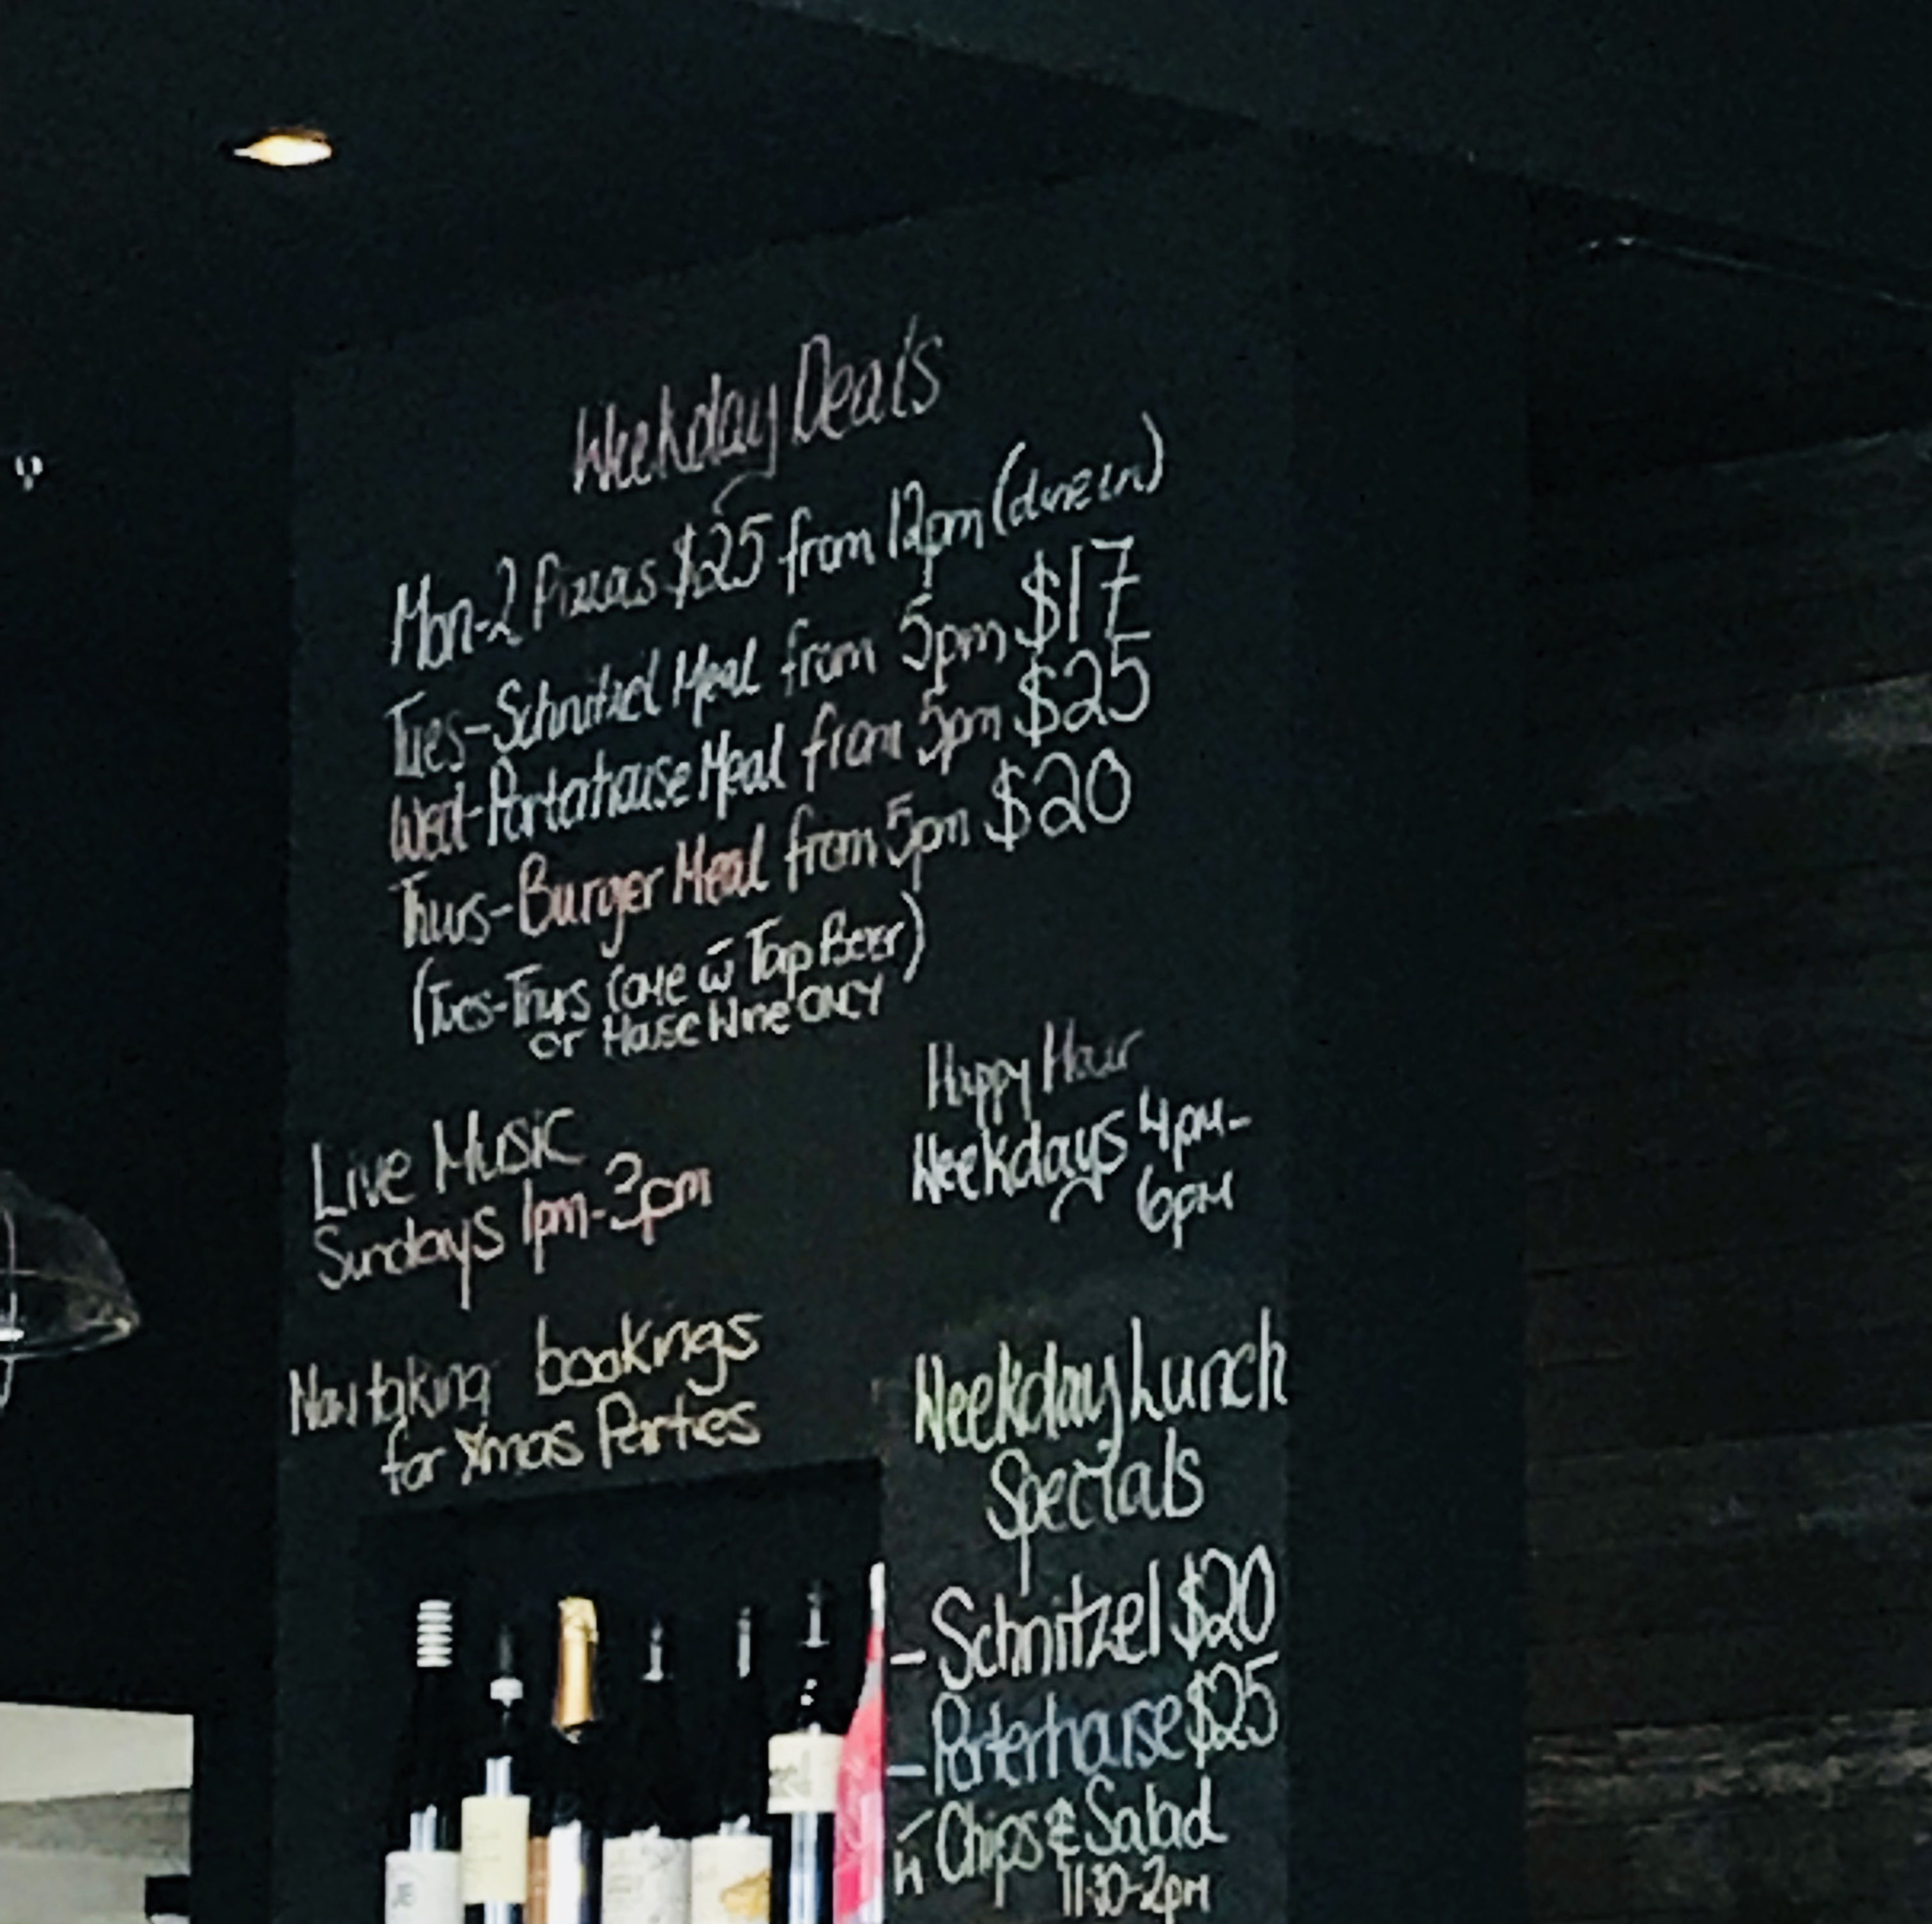 Weekday Deals
Mon-2 Pizzas $25 from 12pm (dine in)
Tues-Schnitzel Meal from 5pm $17
Wed-Porterhouse Meal from 5pm $25
Thurs-Burger Meal from 5pm $20
(Tues-Thurs come w̄ Tap Beer)
or House Wine ONLY
Happy Hour
Weekdays 4pm-
6pm
Live Music
Sundays 1pm-3pm
Now taking bookings
for Xmas Parties
Weekday Lunch
Specials
-Schnitzel $20
-Porterhouse $25
w̄ Chips & Salad
11:30-2pm